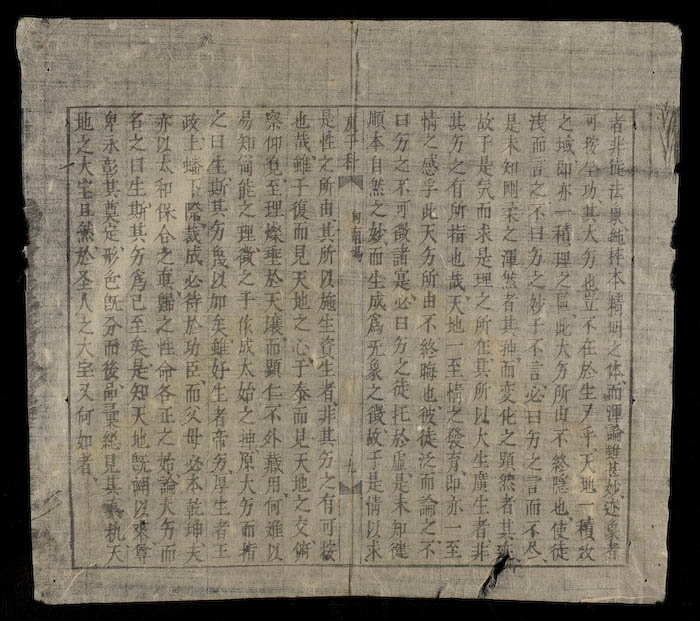 者非徒法象純粹本精明之体而渾淪雖甚妙迹象者
可按全功其大德也豈不在於生乎天地一積效
之域即亦一積理之區此大德所由不終隱也使徒
淺而言之不曰德之妙于不言必曰德之言而不尽
是未知剛柔之渾然者其神而變化之顕然者其迹
故于是気而求是理之所在其所以大生廣生者非
其德之有所指也哉天地一至情之發育即亦一至
情之感孚此天德所由不終晦也彼徒泛而論之不
曰德之不可徵諸寔必曰德之徒托於虛是未知從
順本自然之妙而生成為无象之徵故于是情以求
庚子科
河南場
九
是性之所由其所以施生資生者非其德之有可按
也哉雖于復而見天地之心于泰而見天地之交俯
察仰覌至理燦垂於天壤而顕仁不外藏用何难以
易知簡能之理徵之乎作成太始之神原大德而指
之曰生斯其德蔑以加矣雖好生者帝德厚生者王
政上蟠下際裁成必待於功臣而父母必本乾坤夫
亦以太和保合之真歸之性命各正之始論大德而
名之曰生斯其德為已至矣是知天地既闢以來尊
卑永彰其奠定形色既分而後品彙總見其軌天
地之大宝且然於圣人之大宝又何如者